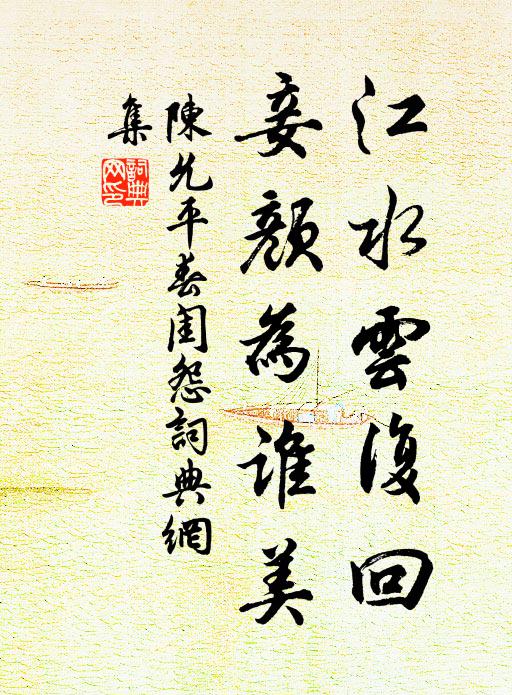 江水雲復回
妾顏為誰美
陳允平春閨怨詞典網
集
詞典
網印